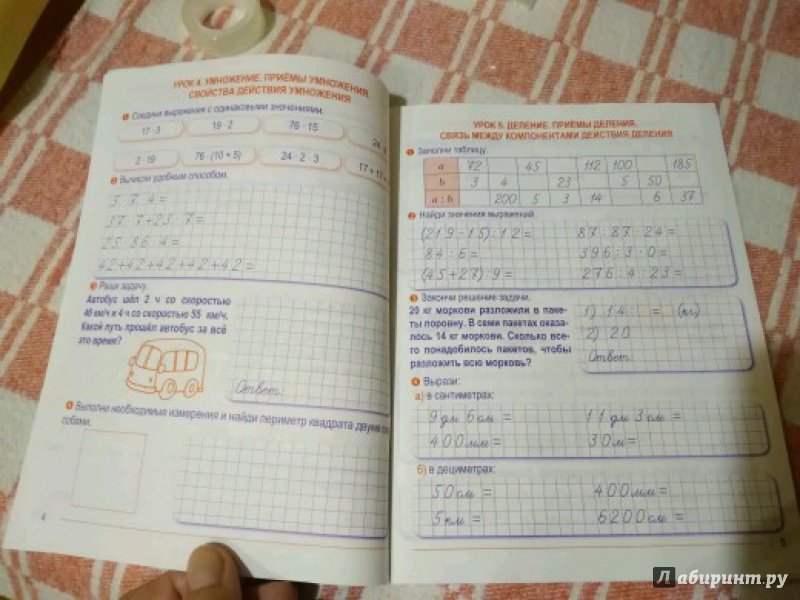 УРОК 4. УМНОЖЕНИЕ. ПРИЁМЫ УМНОЖЕНИЯ.
СВОЙСТВА ДЕЙСТВИЯ УМНОЖЕНИЯ
1 Соедини выражения с одинаковыми значениями.
17 · 3 19 · 2 76 · 15
2 · 19 76 · (10 + 5) 24 · 2 · 3
2 Вычисли удобным способом.
5 · 7 · 4 =
37 · 7 + 23 · 7 =
25 · 86 · 4 =
42 + 42 + 42 + 42 + 42 =
3 Реши задачу.
Автобус шёл 2 ч со скоростью
46 км/ч и 4 ч со скоростью 55 км/ч.
Какой путь прошёл автобус за всё
это время?
Ответ:
4 Выполни необходимые измерения и найди периметр квадрата двумя
собами.
4
УРОК 5. ДЕЛЕНИЕ. ПРИЁМЫ ДЕЛЕНИЯ.
СВЯЗЬ МЕЖДУ КОМПОНЕНТАМИ ДЕЙСТВИЯ ДЕЛЕНИЯ
1 Заполни таблицу.
a 72 45 112 100 185
b 3 4 23 5 50
a : b 200 5 3 14 6 37
2 Найди значения выражений.
(219 - 15) : 12 = 87 : 87 · 24 =
84 : 6 = 396 : 3 · 0 =
(45 + 27) : 9 = 276 : 4 : 23 =
3 Закончи решение задачи.
20 кг моркови разложили в паке-
ты поровну. В семи пакетах оказа-
лось 14 кг моркови. Сколько все-
го понадобилось пакетов, чтобы
разложить всю морковь?
1) 14 : = (кг)
2) 20
Ответ:
4 Вырази:
а) в сантиметрах:
9 дм 6 см = 11 дм 3 см =
400 мм = 30 м =
б) в дециметрах:
50 см = 400 мм =
5 км = 6200 см =
5
Лабиринт.ру